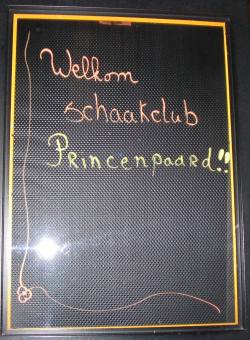 Welkom
schaakclub
Princenpaard!!